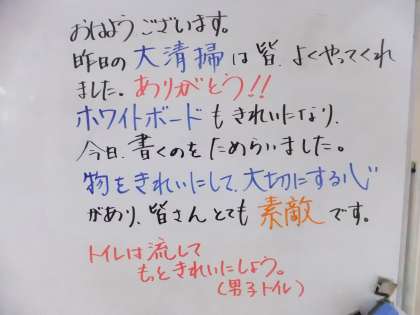 おはようございます。
昨日の大清掃は皆、よくやってくれ
ました。ありがとう!!
ホワイトボードもきれいになり、
今日、書くのをためらいました。
物をきれいにして、大切にする心
があり、皆さんとても素敵です。
トイレは流して
もっときれいにしよう。
(男子トイレ)